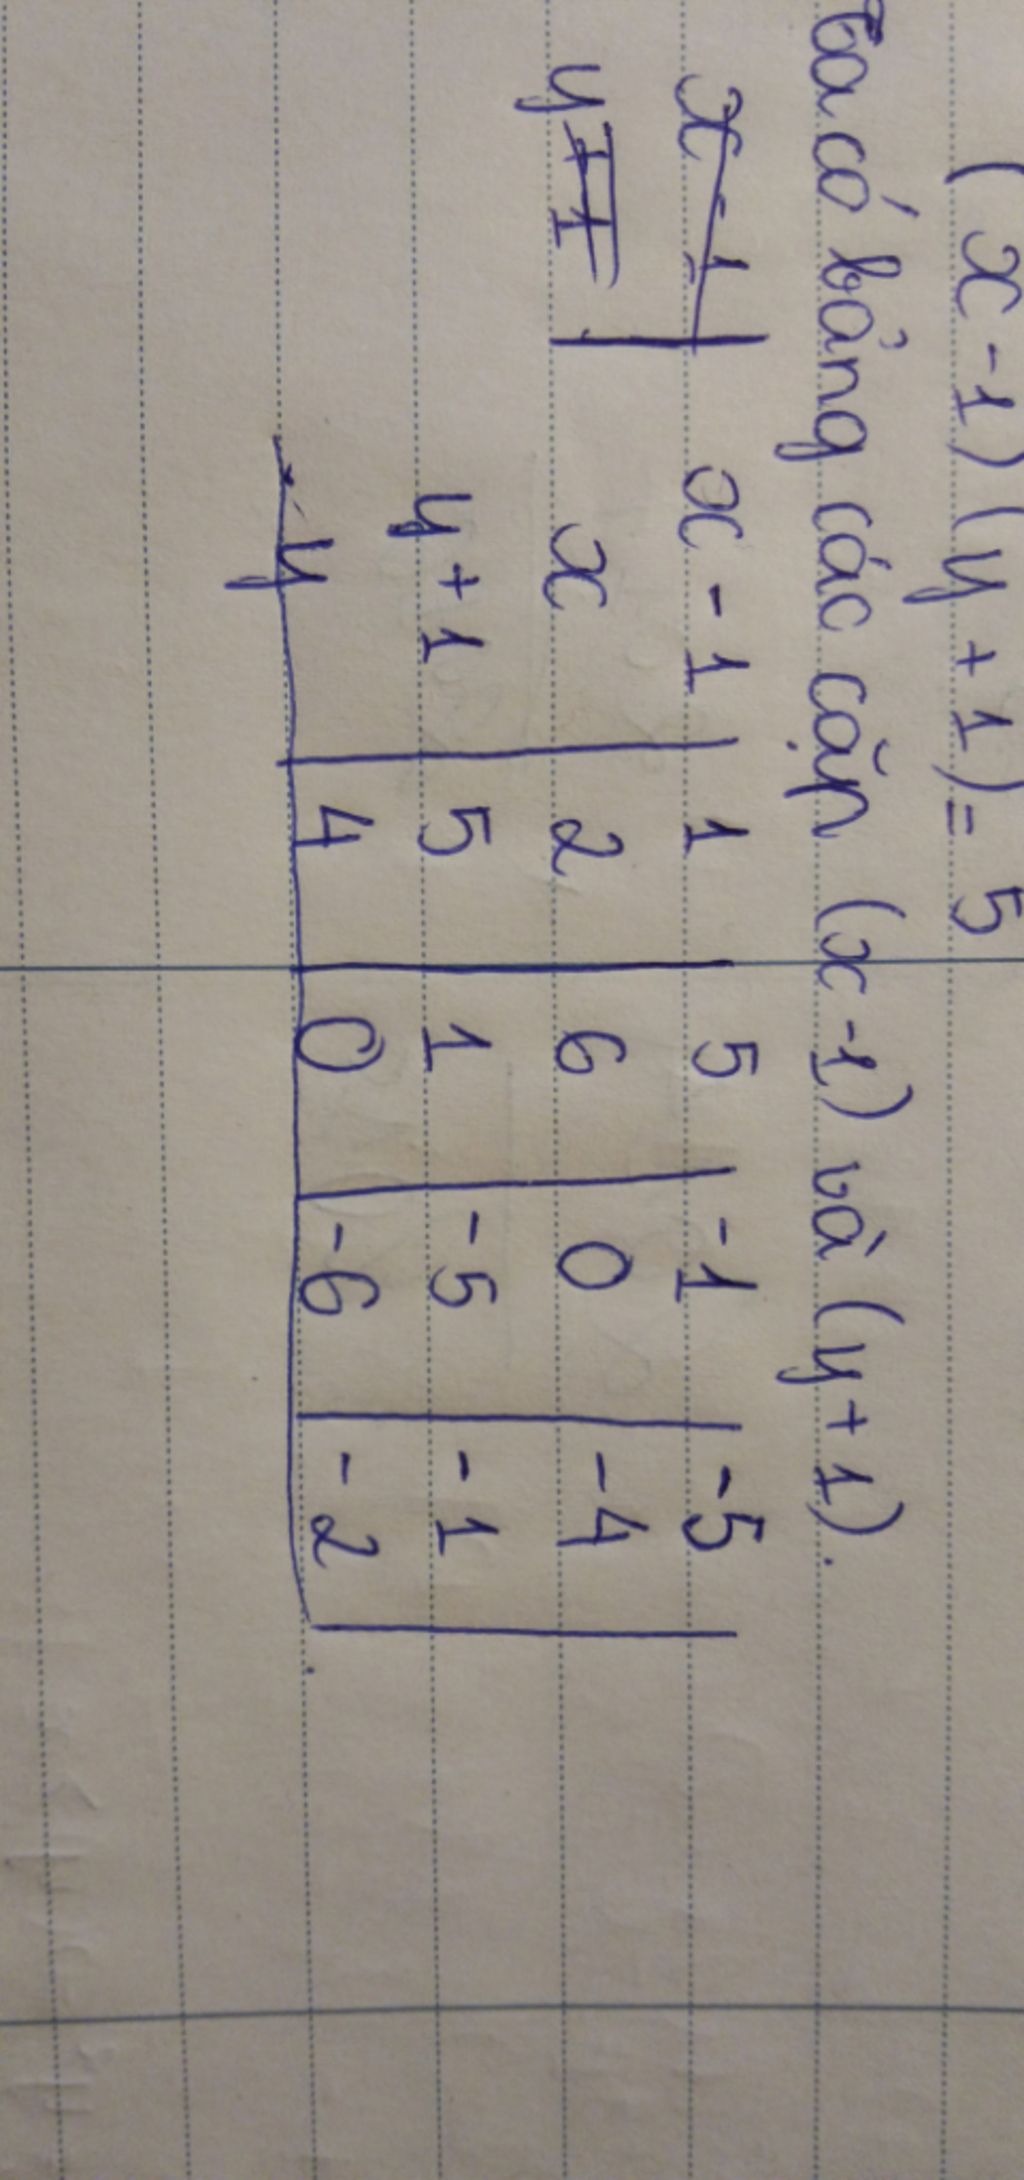 (x-1)(y+1)=5
Ta có bảng các cặp (x-1) và (y+1).
x-1 x-1 1 5 -1 -5
y+1 x 2 6 0 -4
y+1 5 1 -5 -1
y 4 0 -6 -2